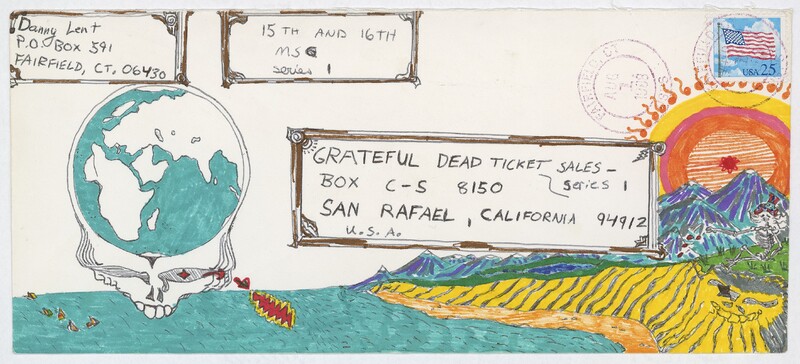 Danny Lent
P.O. BOX 591
FAIRFIELD, CT. 06430
15TH AND 16TH
MSG
series 1
FAIRFIELD, CT
AUG
1988
USA 25
GRATEFUL DEAD TICKET SALES -
BOX C-S 8150 series 1
SAN RAFAEL, CALIFORNIA 94912
U.S.A.